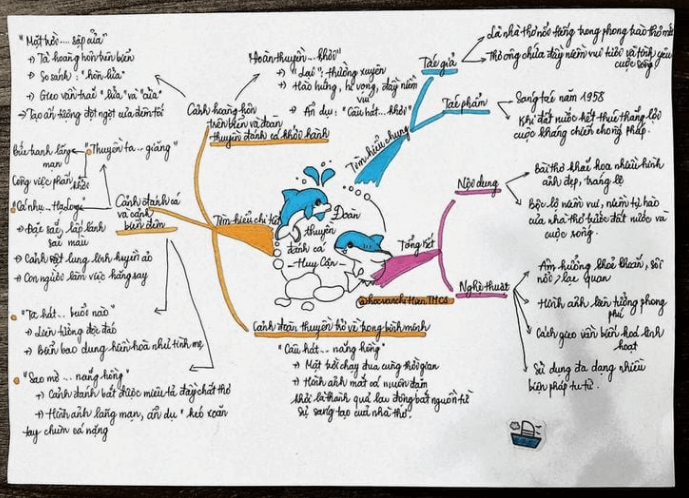 "Mặt trời .... sập cửa"
→ Tả hoàng hôn trên biển
→ So sánh: "hòn lửa"
→ Gieo vần trắc "lửa" và "cửa"
→ Tạo ấn tượng đột ngột của đêm tối
"Đoàn thuyền...khơi"
→ "Lại": thường xuyên
→ Hào hứng, hi vọng, đầy niềm
vui
→ Ẩn dụ: "Câu hát... khơi"
Cảnh hoàng hôn
trên biển và đoàn
thuyền đánh cá khởi hành
Tác giả
Là nhà thơ nổi tiếng trong phong trào thơ mới
Thơ ông chứa đầy niềm vui tươi và tình yêu
cuộc sống
Tác phẩm
Sáng tác năm 1958
Khi đất nước kết thúc thắng lợi
cuộc kháng chiến chống Pháp.
Tìm hiểu chung
Bức tranh lãng
mạn
"Thuyền ta - giăng"
Công việc phấn khởi
"Cá nhụ ... Hạ Long"
→ Đặc sắc, lấp lánh
sắc màu
→ Cảnh vật lung linh huyền ảo
→ Con người làm việc hăng say
Cảnh đánh cá
và cảnh
biển đêm
Tìm hiểu chi tiết
Đoàn
thuyền
đánh cá
- Huy Cận -
Tổng kết
Nội dung
Bài thơ khắc họa nhiều hình
ảnh đẹp, tráng lệ
Bộc lộ niềm vui, niềm tự hào
của nhà thơ trước đất nước và
cuộc sống.
Nghệ thuật
Âm hưởng khoẻ khoắn, sôi
nổi, lạc quan
Hình ảnh liên tưởng phong
phú
Cách gieo vần biến hoá linh
hoạt
Sử dụng đa dạng nhiều
biện pháp tu từ.
@hocvanchiHienTMCS
"Ta hát... buổi nào"
→ Liên tưởng độc đáo
→ Biển bao dung hiền hoà như tình mẹ
"Sao mờ ... nắng hồng"
→ Cảnh đánh bắt được miêu tả đầy chất thơ
→ Hình ảnh lãng mạn, ẩn dụ "kéo xoăn
tay chùm cá nặng
Cảnh đoàn thuyền trở về trong bình minh
"Câu hát ... nắng hồng"
→ Mặt trời chạy đua cùng thời gian
→ Hình ảnh mắt cá muôn dặm
khơi là thành quả lao động bắt nguồn từ
sự sáng tạo của nhà thơ.